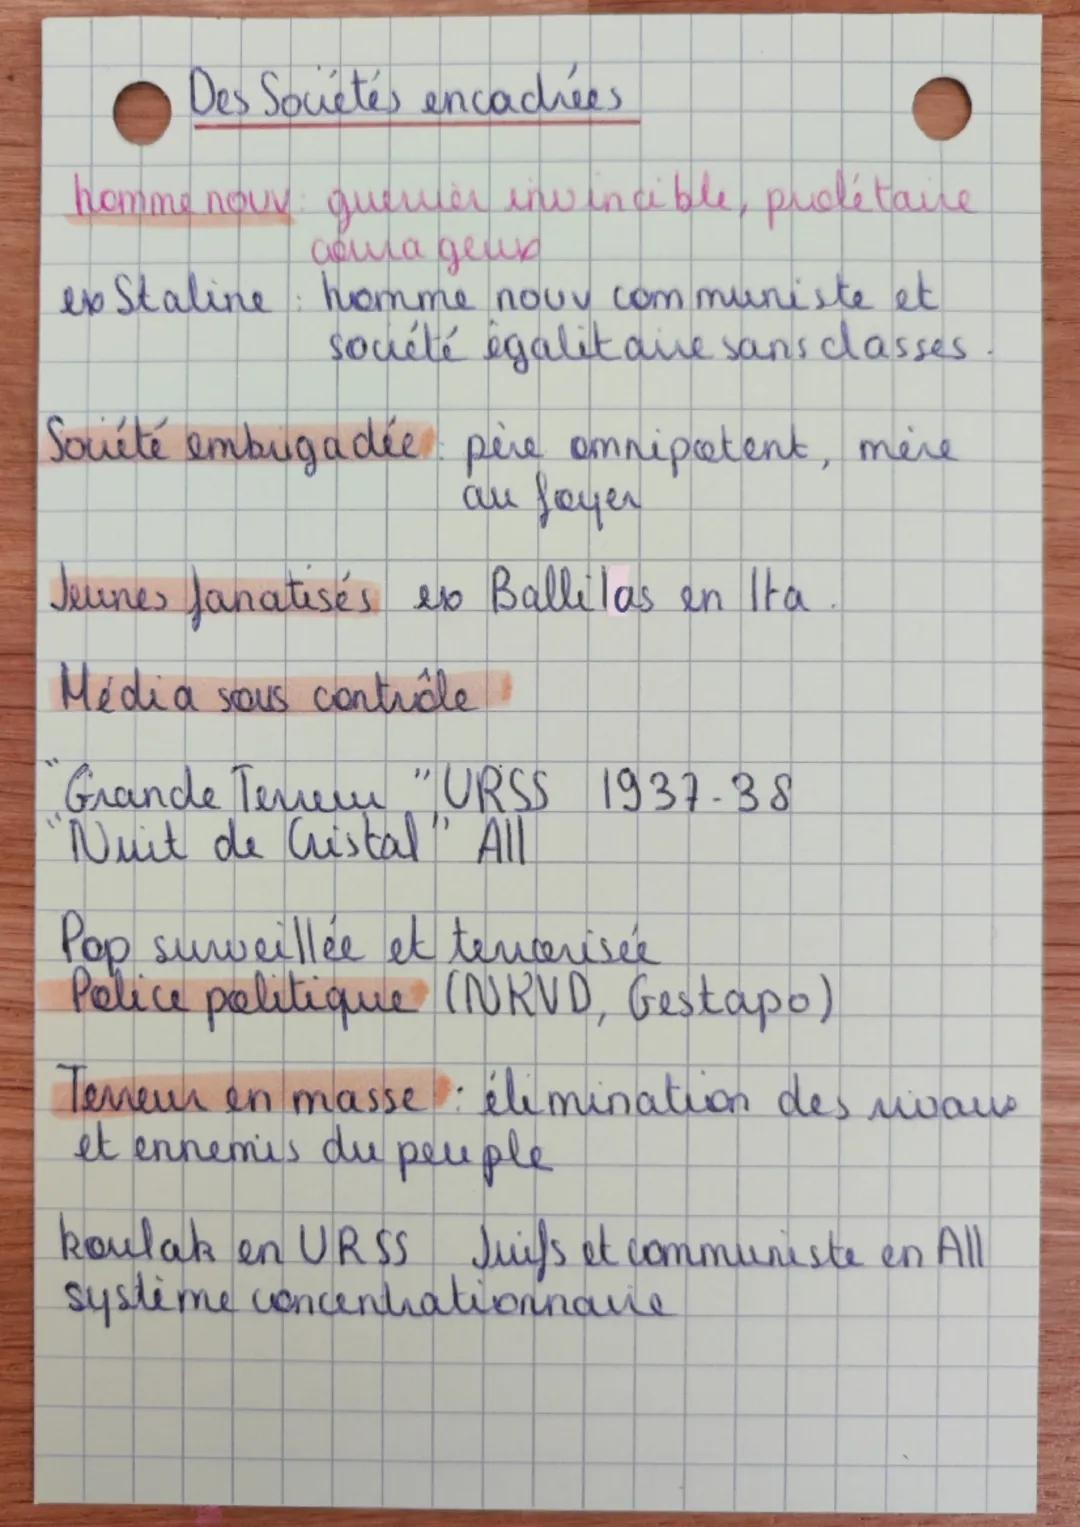 Des Sociétés encadrées
homme nouv : guerrier invincible, prolétaire
courageux
ex Staline : homme nouv communiste et
société égalitaire sans classes.
Société embrigadée : père omnipotent, mère
au foyer
Jeunes fanatisés ex Ballilas en Ita.
Média sous contrôle
"Grande Terreur" URSS 1937-38
"Nuit de Cristal" All
Pop surveillée et terrorisée
Police politique (NKVD, Gestapo)
Terreur en masse : élimination des rivaux
et ennemis du peuple
koulak en URSS Juifs et communiste en All
système concentrationnaire